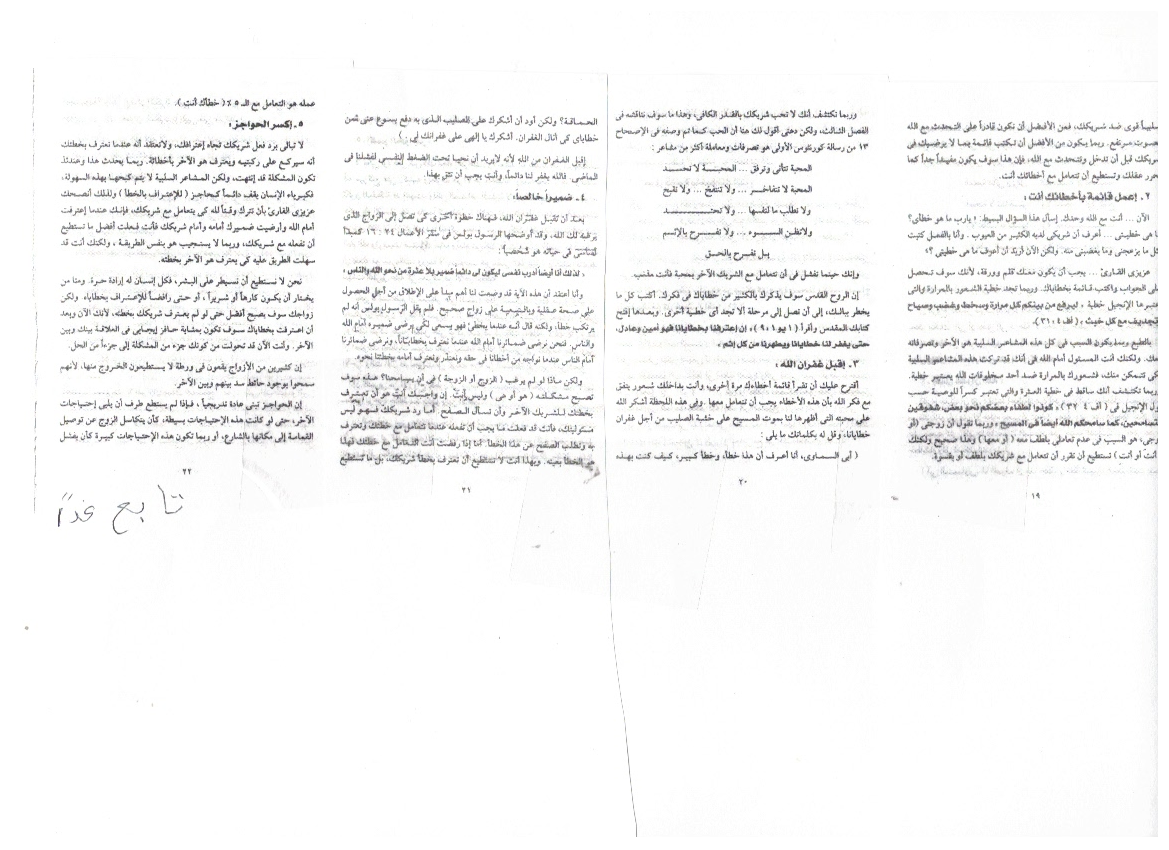 سلبياً قوى ضد شريكك، فمن الأفضل أن تكون قادراً على التحدث مع الله
بصوت مرتفع. ربما يكون من الأفضل أن تكتب قائمة بما لا يرضيك فى
شريكك قبل أن تدخل وتتحدث مع الله، فإن هذا سوف يكون مفيداً جداً كما
يحرر عقلك وتستطيع أن تتعامل مع أخطائك أنت.
٢ـ إعمل قائمة بأخطائك أنت :
الآن ... أنت مع الله وحدك. إسأل هذا السؤال البسيط : « يارب ما هو خطأى؟
ما هى خطيتى ... أعرف أن شريكى لديه الكثير من العيوب . وأنا بالفعل كتبت
كل ما يزعجنى وما يغضبنى منه. ولكن الآن أريد أن أعرف ما هى خطيتى ؟»
عزيزى القارئ ... يجب أن يكون معك قلم وورقة، لأنك سوف تحصل
على الجواب واكتب قائمة بخطاياك. وربما تجد خطية الشعور بالمرارة والتى
يعتبرها الإنجيل خطية ، ليرفع من بينكم كل مرارة وسخط وغضب وصياح
وتجديف مع كل خبث » ( أف ٤ : ٣١).
بالطبع ربما يكون السبب فى كل هذه المشاعر السلبية هو الآخر وتصرفاته
معك. ولكنك أنت المسئول أمام الله فى أنك قد تركت هذه المشاعر السلبية
لكى تتمكن منك، فشعورك بالمرارة ضد أحد مخلوقات الله يعتبر خطية.
وربما تكتشف أنك ساقط فى خطية العثرة والتى تعتبر كسراً للوصية حسب
قول الإنجيل فى ( أف ٤ : ٣٢) ، كونوا لطفاء بعضكم نحو بعض، شفوقين
متسامحين، كما سامحكم الله أيضاً فى المسيح » وربما تقول أن زوجتى (أو
زوجى، هو السبب فى عدم تعاملى بلطف معه ( أو معها) وهذا صحيح ولكنك
أنت( أو أنتِ ) تستطيع أن تقرر أن تتعامل مع شريكك بلطف أو بقسوة.
١٩
وربما تكتشف أنك لا تحب شريكك بالقدر الكافى، وهذا ما سوف نناقشه فى
الفصل الثالث، ولكن دعنى أقول لك هنا أن الحب كما تم وصفه فى الإصحاح
١٣ من رسالة كورنثوس الأولى هو تصرفات ومعاملة أكثر من مشاعر :
المحبة تتأنى وترفق ... المحبة لا تحسد
المحبة لا تتفاخر ... ولا تنتفخ ... ولا تقبح
ولا تطلب ما لنفسها ... ولا تحتد
ولا تظن السوء ... ولا تفرح بالإثم
بل تفرح بالحق
وإنك حينما تفشل فى أن تتعامل مع الشريك الآخر بمحبة فأنت مذنب.
إن الروح القدس سوف يذكرك بالكثير من خطاياك فى فكرك. أكتب كل ما
يخطر ببالك، إلى أن تصل إلى مرحلة ألا تجد أى خطية أخرى. وبعدها إفتح
كتابك المقدس وأقرأ ( ١ يو ١ : ٩ ) ، إن إعترفنا بخطايانا فهو أمين وعادل،
حتى يغفر لنا خطايانا ويطهرنا من كل إثم ،
٣ـ إقبل غفران الله :
أقترح عليك أن تقرأ قائمة أخطاءك مرة إخرى، وأنت بداخلك شعور يتفق
مع فكر الله بأن هذه الأخطاء يجب أن تتعامل معها . وفى هذه اللحظة أشكر الله
على محبته التى أظهرها لنا بموت المسيح على خشبة الصليب من أجل غفران
خطايانا، وقل له بكلماتك ما يلى :
( أبى السماوى، أنا أعرف أن هذا خطأ، وخطأ كبير، كيف كنت بهذه
٢٠
الحماقة؟ ولكن أود أن أشكرك على الصليب الذى به دفع يسوع عنى ثمن
خطاياى كى أنال الغفران. أشكرك يا إلهى على غفرانك لى . )
إقبل الغفران من الله لأنه لايريد أن نحيا تحت الضغط النفسى لفشلنا فى
الماضى. فالله يغفر لنا دائماً، وأنت يجب أن تثق بهذا.
٤ـ ضميراً خالصاً:
بعد أن تقبل غفران الله، فهناك خطوة أخرى كى تصل إلى الزواج الذى
يرغبه لك الله. وقد أوضحها الرسول بولس فى سفر الأعمال ٢٤ : ١٦ كمبدأ
أساسى فى حياته هو شخصياً :
، لذلك أنا أيضاً أدرب نفسى ليكون لى دائماً ضمير بلا عثرة من نحو الله والناس ،
وأنا أعتقد أن هذه الآية قد وضعت لنا أهم مبدأ على الإطلاق من أجل الحصول
على صحة عقلية وبالتبعية على زواج صحيح. فلم يقل الرسول بولس أنه لم
يرتكب خطأ، ولكنه قال أنه عندما يخطئ فهو يسعى لكى يرضى ضميره أمام الله
والناس. فنحن نرضى ضمائرنا أمام الله عندما نعترف بخطايانا، ونرضى ضمائرنا
أمام الناس عندما نواجه من أخطأنا فى حقه ونعتذر ونعترف أمامه بخطئنا نحوه.
ولكن ماذا لو لم يرغب ( الزوج أو الزوجة ) فى أن يسامحنا؟ هذه سوف
تصبح مشكلته ( هو أو هى ) وليس أنت. إن واجبك أنت هو أن تعترف
بخطئك لشريكك الآخر وأن تسأل الصفح. أما رد شريكك فهو ليس
مسئوليتك، فأنت قد فعلت ما يجب أن تفعله عندما تتعامل مع خطئك وتعترف
به وتطلب الصفح عن هذا الخطأ. أما إذا رفضت أنت التعامل مع خطئك فهذا
هو الخطأ بعينه. وبهذا أنت لا تستطيع أن تعترف بخطأ شريكك، بل ما تستطيع
٢١
عمله هو التعامل مع الـ ٥ ٪ ( خطأك أنت ).
٥ـ إكسر الحواجز :
لا تبالى برد فعل شريكك تجاه إعترافك، ولاتعتقد أنه عندما تعترف بخطئك
أنه سيركع على ركبتيه ويعترف هو الآخر بأخطائه. ربما يحدث هذا وعندئذ
تكون المشكلة قد إنتهت، ولكن المشاعر السلبية لا يتم كبحها بهذه السهولة.
فكبرياء الإنسان يقف دائماً كحاجز ( للإعتراف بالخطأ ) ولذلك أنصحك
عزيزى القارئ بأن تترك وقتاً لله كى يتعامل مع شريكك، فإنك عندما إعترفت
أمام الله وأرضيت ضميرك أمامه وأمام شريكك فأنت فعلت أفضل ما تستطيع
أن تفعله مع شريكك، وربما لا يستجيب هو بنفس الطريقة ، ولكنك أنت قد
سهلت الطريق عليه كى يعترف هو الآخر بخطئه.
نحن لا نستطيع أن نسيطر على البشر، فكل إنسان له إرادة حرة. ومنا من
يختار أن يكون كارهاً أو شريراً ، أو حتى رافضاً للإعتراف بخطاياه. ولكن
زواجك سوف يصبح أفضل حتى لو لم يعترف شريكك بخطئه، لأنك الآن وبعد
أن اعترفت بخطاياك سوف تكون بمثابة حافز إيجابى فى العلاقة بينك وبين
الآخر. وأنت الآن قد تحولت من كونك جزء من المشكلة إلى جزءاً من الحل.
إن كثيرين من الأزواج يقعون فى ورطة لا يستطيعون الخروج منها، لأنهم
سمحوا بوجود حائط سد بينهم وبين الآخر.
إن الحواجز تبنى عادة تدريجياً ، فإذا لم يستطع طرف أن يلبى إحتياجات
الآخر، حتى لو كانت هذه الإحتياجات بسيطة، كأن يتكاسل الزوج عن توصيل
القمامة إلى مكانها بالشارع، أو ربما تكون هذه الإحتياجات كبيرة كأن يفشل
٢٢
تابع غداً